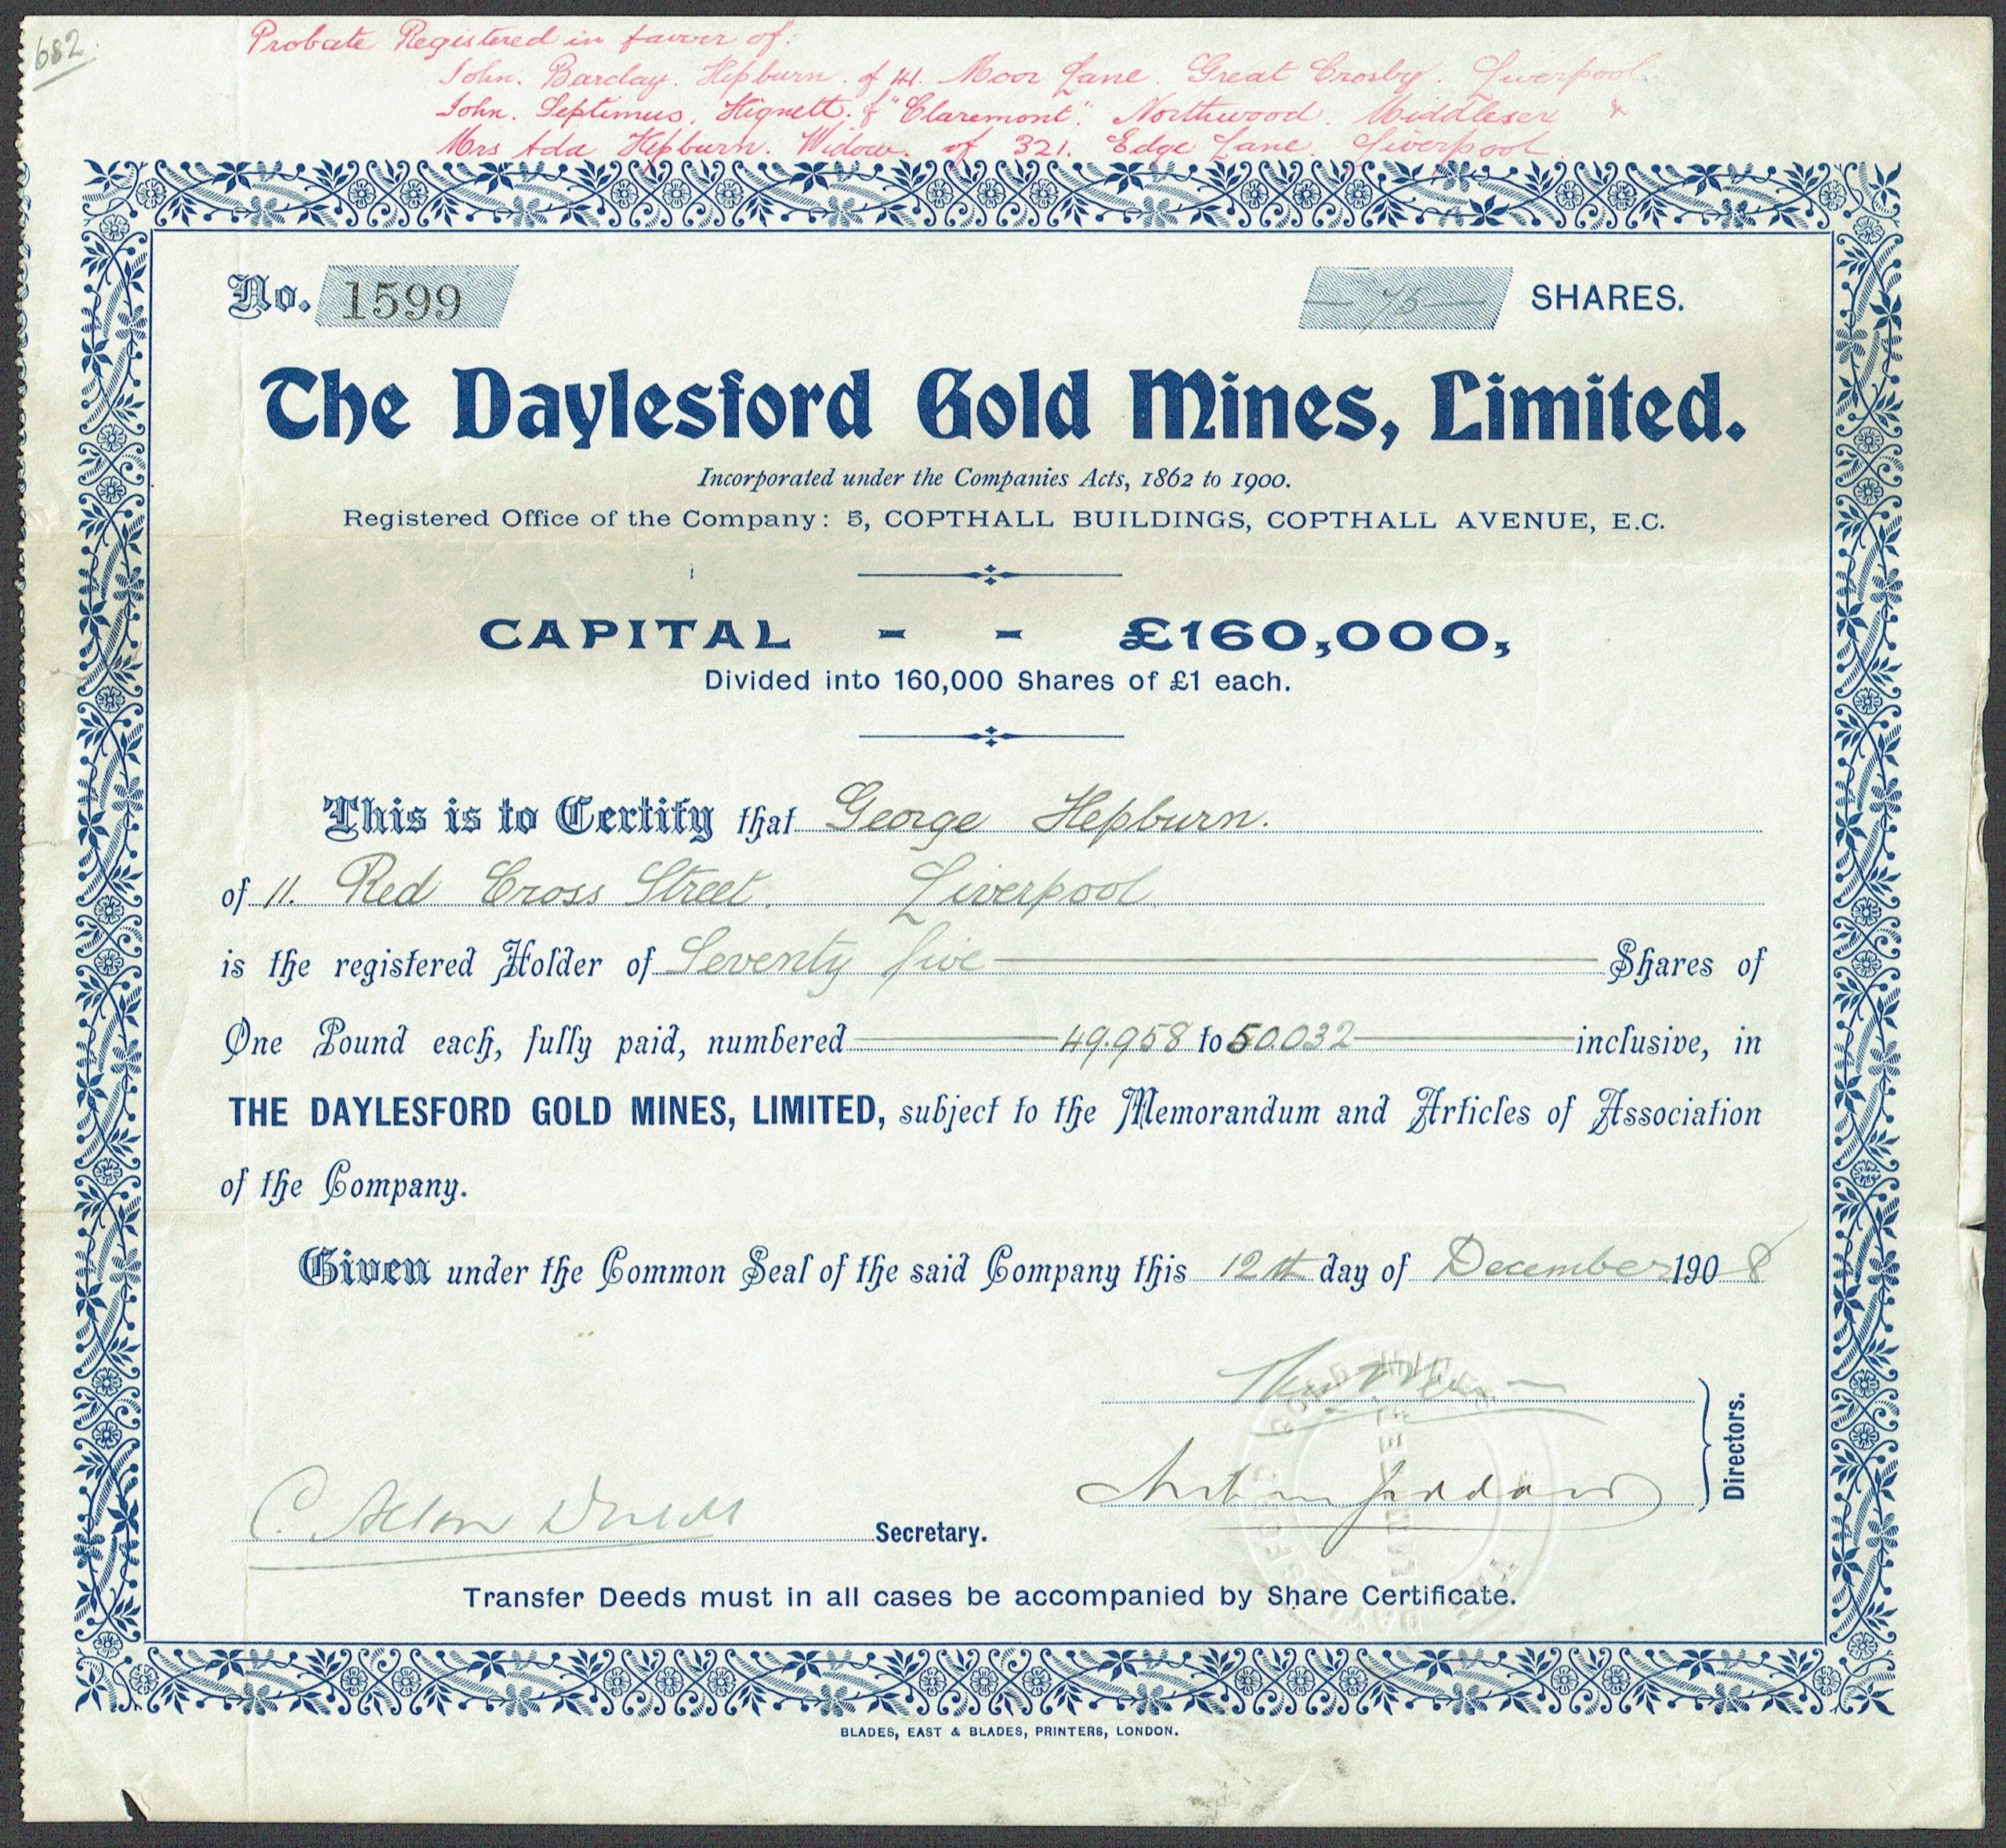 682
Probate Registered in favor of:
John. Barclay. Hepburn. of 141. Moor Lane. Great Crosby. Liverpool
John. Septimus. Hignett. of "Claremont". Northwood. Middlesex &
Mrs Ada Hepburn. Widow. of 321. Edge Lane. Liverpool
No. 1599 — 75 — SHARES.
The Daylesford Gold Mines, Limited.
Incorporated under the Companies Acts, 1862 to 1900.
Registered Office of the Company: 5, COPTHALL BUILDINGS, COPTHALL AVENUE, E.C.
CAPITAL - - £160,000,
Divided into 160,000 Shares of £1 each.
This is to Certify that George Hepburn.
of 11. Red Cross Street. Liverpool
is the registered Holder of Seventy five Shares of
One Pound each, fully paid, numbered 49.958 to 50.032 inclusive, in
THE DAYLESFORD GOLD MINES, LIMITED, subject to the Memorandum and Articles of Association
of the Company.
Given under the Common Seal of the said Company this 12th day of December 1908
Directors.
C. Acton Secretary.
Transfer Deeds must in all cases be accompanied by Share Certificate.
BLADES, EAST & BLADES, PRINTERS, LONDON.